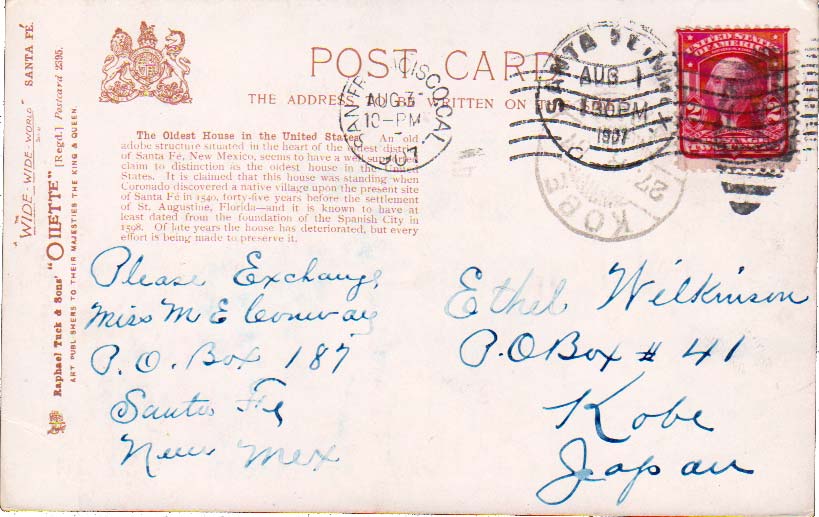 POST CARD
THE ADDRESS TO BE WRITTEN ON
The Oldest House in the United States. An old
adobe structure situated in the heart of the oldest district
of Santa Fé, New Mexico, seems to have a well supported
claim to distinction as the oldest house in the United
States. It is claimed that this house was standing when
Coronado discovered a native village upon the present site
of Santa Fé in 1540, forty-five years before the settlement
of St. Augustine, Florida—and it is known to have at
least dated from the foundation of the Spanish City in
1598. Of late years the house has deteriorated, but every
effort is being made to preserve it.
"WIDE-WIDE-WORLD" SANTA FÉ.
Raphael Tuck & Sons' "OILETTE" [Regd.] Postcard 2395.
ART PUBLISHERS TO THEIR MAJESTIES THE KING & QUEEN.
SAN FRANCISCO, CAL.
AUG 3
10-PM
SANTA FE, N.M.
AUG 1
1907
UNITED STATES
OF AMERICA
KOBE
27
Please Exchange
Miss M E Conway
P.O. Box 187
Santa Fe
New Mex
Ethel Wilkinson
P.O Box # 41
Kobe
Japan